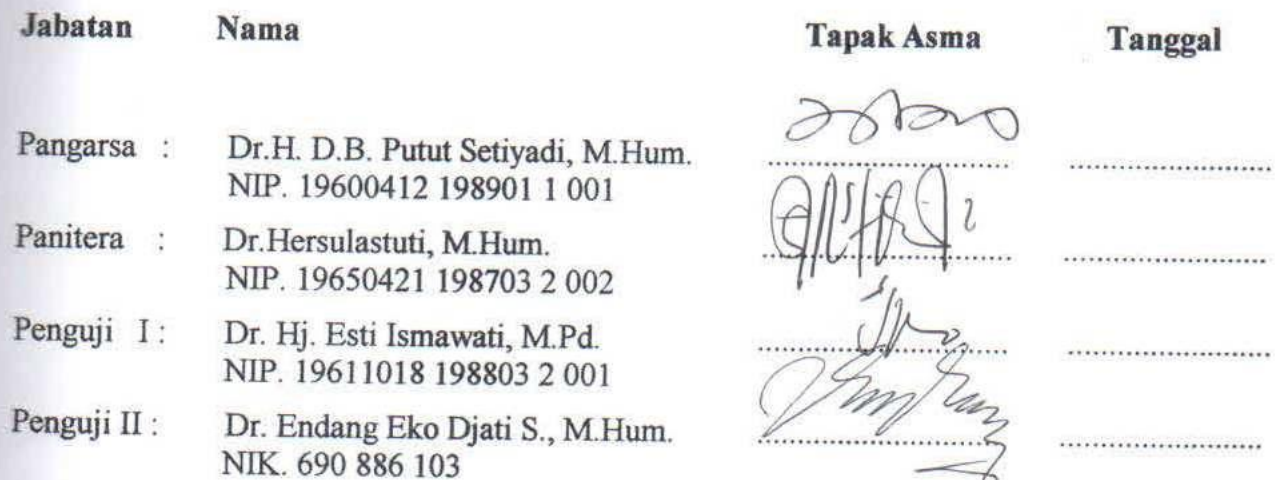 Jabatan Nama Tapak Asma Tanggal
Pangarsa : Dr.H. D.B. Putut Setiyadi, M.Hum. ........................ ........................
NIP. 19600412 198901 1 001
Panitera : Dr.Hersulastuti, M.Hum. ........................ ........................
NIP. 19650421 198703 2 002
Penguji I : Dr. Hj. Esti Ismawati, M.Pd. ........................ ........................
NIP. 19611018 198803 2 001
Penguji II : Dr. Endang Eko Djati S., M.Hum. ........................ ........................
NIK. 690 886 103